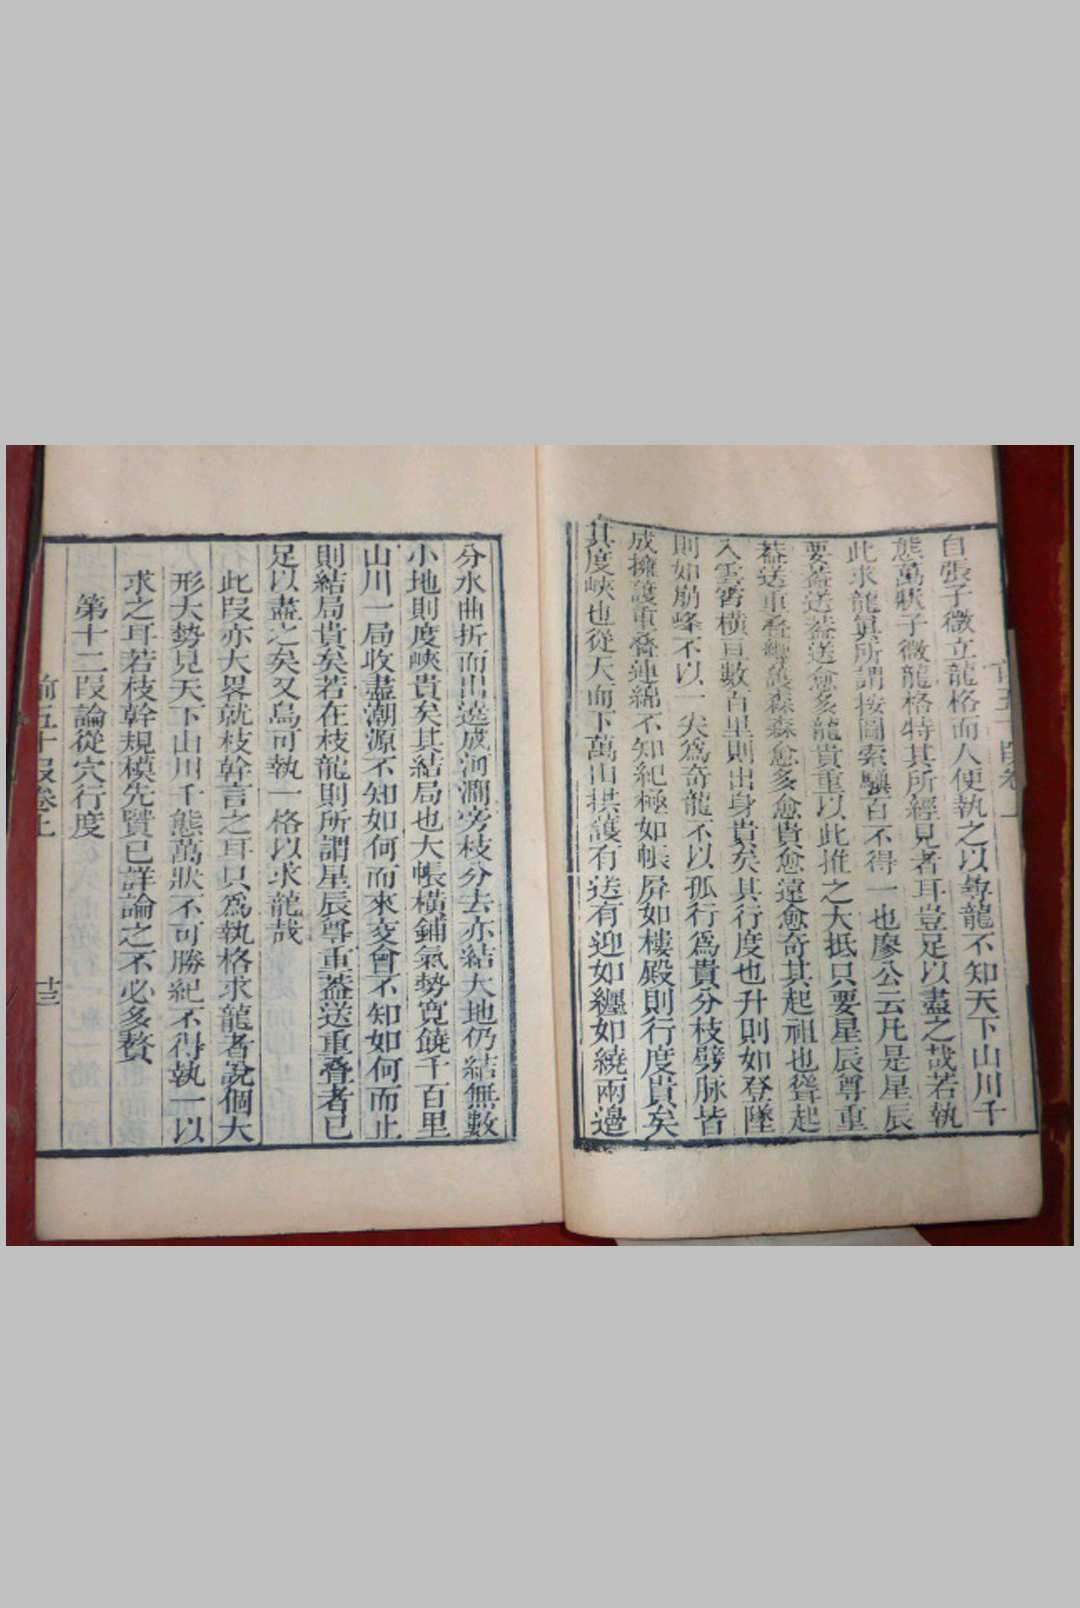 自張子微立龍格而人便執之以尋龍不知天下山川千
態萬狀子微龍格特其所經見者耳豈足以盡之哉若執
此求龍眞所謂按圖索驥百不得一也廖公云凡是星辰
要葢送葢送愈多龍貴重以此推之大抵只要星辰尊重
葢送重叠纏護森森愈多愈貴愈遠愈奇其起祖也聳起
入雲霄橫亘數百里則出身貴矣其行度也升則如登墜
則如崩峰不以一尖爲奇龍不以孤行爲貴分枝劈脉皆
成擁護重叠連綿不知紀極如帳屏如樓殿則行度貴矣
其度峽也從天而下萬山拱護有送有迎如纏如繞兩邊
分水曲折而出遶成河澗旁枝分去亦結大地仍結無數
小地則度峽貴矣其結局也大帳橫鋪氣勢寬饒千百里
山川一局收盡潮源不知如何而來交會不知如何而止
則結局貴矣若在枝龍則所謂星辰尊重葢送重叠者已
足以盡之矣又烏可執一格以求龍哉
此叚亦大畧就枝幹言之耳只爲執格求龍者說個大
形大勢見天下山川千態萬狀不可勝紀不得執一以
求之耳若枝幹規模先賢已詳論之不必多贅
第十二叚論從穴行度
前五十叚卷上
十三